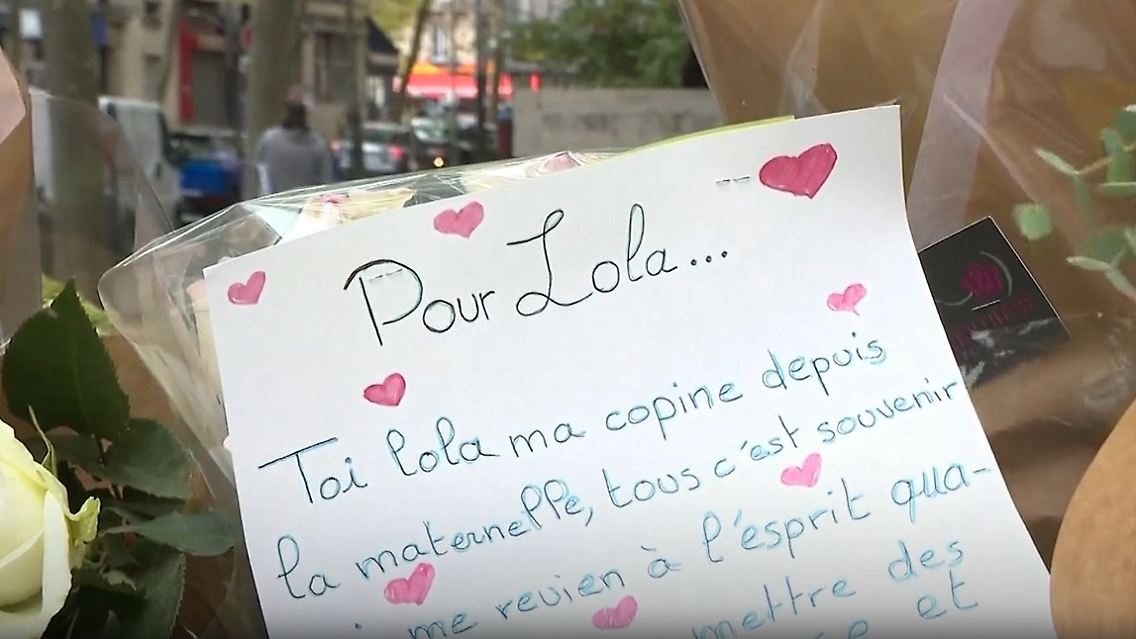 Pour Lola...
Toi lola ma copine depuis
la maternelle, tous c'est souvenir
me revien à l'ésprit qua-
mettre des
et